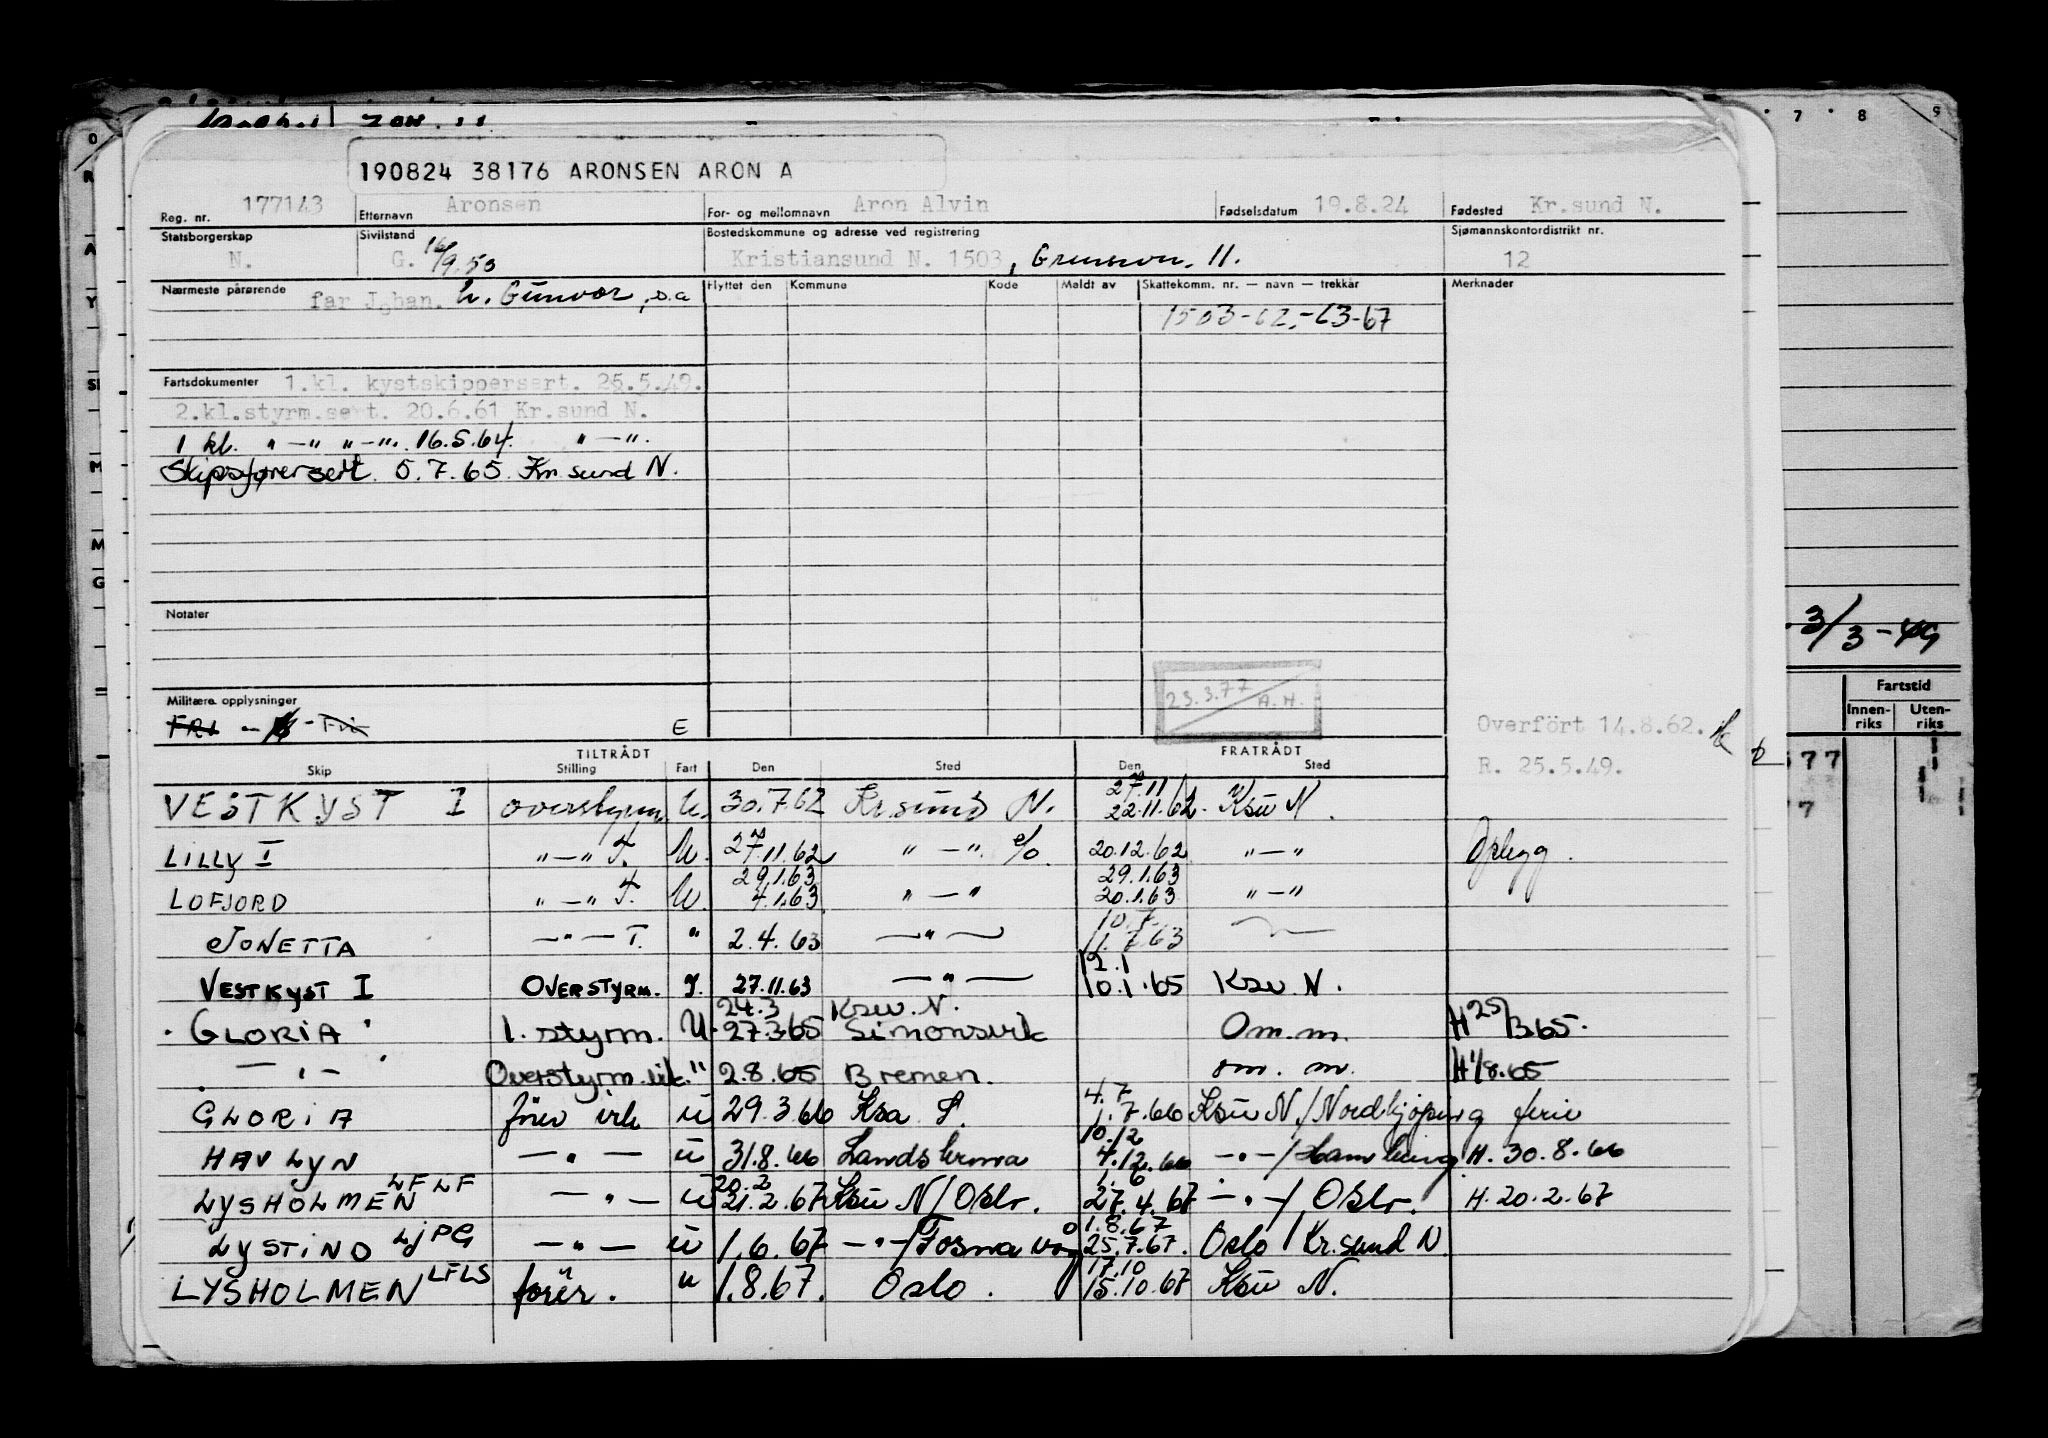 190824 38176 ARONSEN ARON A
Reg. nr. 177143 Etternavn Aronsen For- og mellomnavn Aron Alvin Fødselsdatum 19.8.24 Fødested Kr.sund N.
Statsborgerskap Sivilstand Bostedskommune og adresse ved registrering Sjømannskontordistrikt nr.
N. G. 16/9.50 Kristiansund N. 1503, 11. 12
Nærmeste pårørende far Johan. h. Gunvor, s.a Flyttet den Kommune Kode Meldt av Skattekomm. nr. — navn — trekkår Merknader
1503-62.-63-67
Fartsdokumenter 1.kl. kystskippersert. 25.5.49.
2.kl.styrm.sert. 20.6.61 Kr.sund N.
1 kl. " — " " — ". 16.5.64. " — ".
Skipsførersert. 5.7.65 Kr. sund N.
Notater
23.3.77 A.H.
Militære opplysninger
FRI - Fri E Overført 14.8.62.
TILTRÅDT FRATRÅDT
Skip Stilling Fart Den Sted Den Sted
R. 25.5.49.
VESTKYST I overstyrm U. 30.7.62 Kr.sund N. 27.11/22.11.62. Ksu N.
LILLY I " — " T. U. 27.11.62 " — ". e/o 20.12.62 " — " Opbygg.
LOFJORD " — " T. U. 29.1.63 4.1.63 " — " 29.1.63 20.1.63 " — "
JONETTA — " — T. " 2.4.63 — " — 10.7. 11.7.63
VESTKYST I OVERSTYRM. 27.11.63 — " — 12.1 10.1.65 Ksu N.
GLORIA 1. styrm. U 24.3 27.3.65 Ksu. N. Simonsvik Om.m. H 25/3.65.
— " — Overstyrm.vik. " 2.8.65 Bremen. om. m. H 1/8.65
GLORIA förer vik u 29.3.66 Ksa S. 4.7 1.7.66 Ksu N./Nordkjøping ferie
HAVLYN — " — u 31.8.66 Landskrona 10.12 4.12.66 — " —/Hamburg H. 30.8.66
LYSHOLMEN LFLF — " — u 20.2 21.2.67 Ksu N/Oslo. 1.6 27.4.67 — " —/Oslo. H. 20.2.67
LYSTIND LJPG — " — u 1.6.67 — " —/Fosnavåg 1.8.67 25.7.67. Oslo / Kr.sund N.
LYSHOLMEN LFLS förer. " 1.8.67. Oslo. 17.10 15.10.67 Ksu N.
7 8 9
0
R
A
Y
SI
M
M
G
3/3-49
Fartstid
Innen-riks Uten-riks
577
7